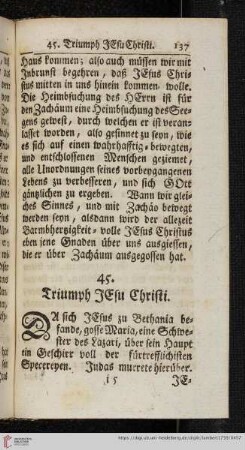 45. Triumph JEsu Christi. 137
Haus kommen; also auch müssen wir mit
Inbrunst begehren, daß JEsus Chris
stus mitten in uns hinein kommen wolle.
Die Heimbsuchung des HErrn ist für
den Zachäum eine Heimbsuchung des See-
gens gewest, durch welchen er ist veran-
lasset worden, also gesinnet zu seyn, wie
es sich auf einen wahrhafftig-bewegten,
und entschlossenen Menschen geziemet,
alle Unordnungen seines vorbeygangenen
Lebens zu verbesseren, und sich GOtt
gäntzlichen zu ergeben. Wann wir glei-
ches Sinnes, und mit Zachäo bewegt
werden seyn, alsdann wird der allezeit
Barmhertzigkeit-volle JEsus Christus
eben jene Gnaden über uns ausgiessen,
die er über Zachäum ausgegossen hat.
45.
Triumph JEsu Christi.
DA sich JEsus zu Bethania be-
fande, gosse Maria, eine Schwe-
ster des Lazari, über sein Haupt
ein Geschirr voll der fürtrefflichsten
Specereyen. Judas murrete hierüber.
i 5 JE-